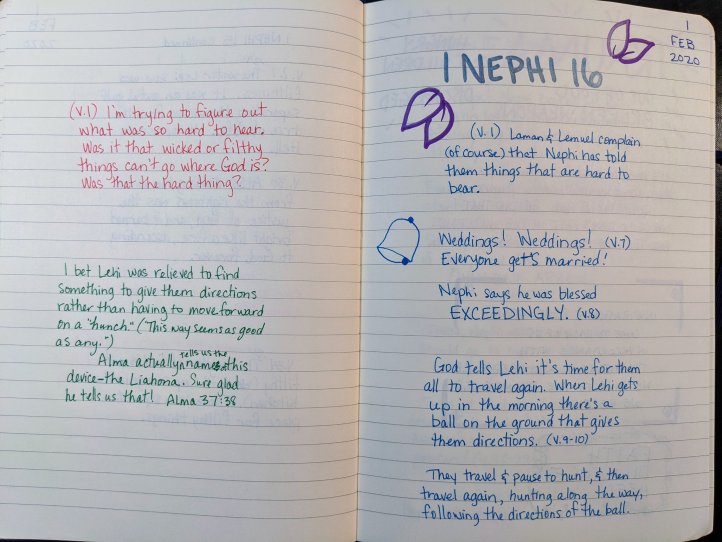 (v.1) I'm trying to figure out
what was so hard to hear.
Was it that wicked or filthy
things can't go where God is?
Was that the hard thing?
I bet Lehi was relieved to find
something to give them directions
rather than having to move forward
on a "hunch." ("This way seems as good
as any.")
Alma actually tells us the name of this
device-the Liahona. Sure glad
he tells us that! Alma 37:38
1
FEB
2020
1 NEPHI 16
(v.1) Laman & Lemuel complain
(of course) that Nephi has told
them things that are hard to
bear.
Weddings! Weddings! (v.7)
Everyone gets married!
Nephi says he was blessed
EXCEEDINGLY. (v.8)
God tells Lehi it's time for them
all to travel again. When Lehi gets
up in the morning there's a
ball on the ground that gives
them directions. (v.9-10)
They travel & pause to hunt, & then
travel again, hunting along the way,
following the directions of the ball.